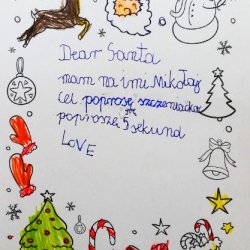 Dear Santa
mam na imi Mikołaj
Cel poproszę szczeniaczka
poproszę 5 sekund
LOVE